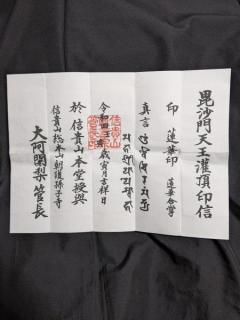 毘沙門天王灌頂印信
印 蓮華印 蓮華合掌
真言
令和四壬寅歳寅月吉祥日
於信貴山本堂授與
信貴山総本山朝護孫子寺
大阿闍梨管長